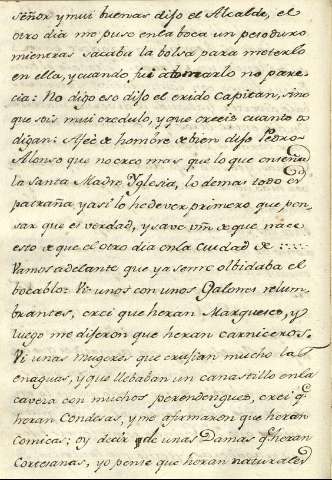 señor y mui buenas dijo el Alcalde, el
otro dia me puse en la boca un peso duro
mientras sacaba la bolsa para meterlo
en ella, y cuando fui à tomarlo no pare
cia: No digo eso dijo el erido Capitan, sino
que sois mui credulo, y que creeis cuanto os
digan: Afeè de hombre de bien dijo Pedro
Alonso que no creo mas que lo que enseña
la Santa Madre Yglesia, lo demas todo es
patraña, y asi lo he de ver primero que pen
sar que es verdad, y save vm̃ de que nace
esto de que el otro dia en la Ciudad de :....
Vamos adelante que ya se me olbidaba el
bocablo: Vi unos con unos Galones relum
brantes, crei que heran Marqueses, y
luego me dijeron que heran carniceros.
Vi unas mugeres que crujian mucho las
enaguas, y que llebaban un canastillo en la
caveza con muchos perendengues, crei q.e
heran Condesas, y me afirmaron que heran
Comicas: oy decir de unas Damas q.e heran
Cortesanas, yo pense que heran naturales